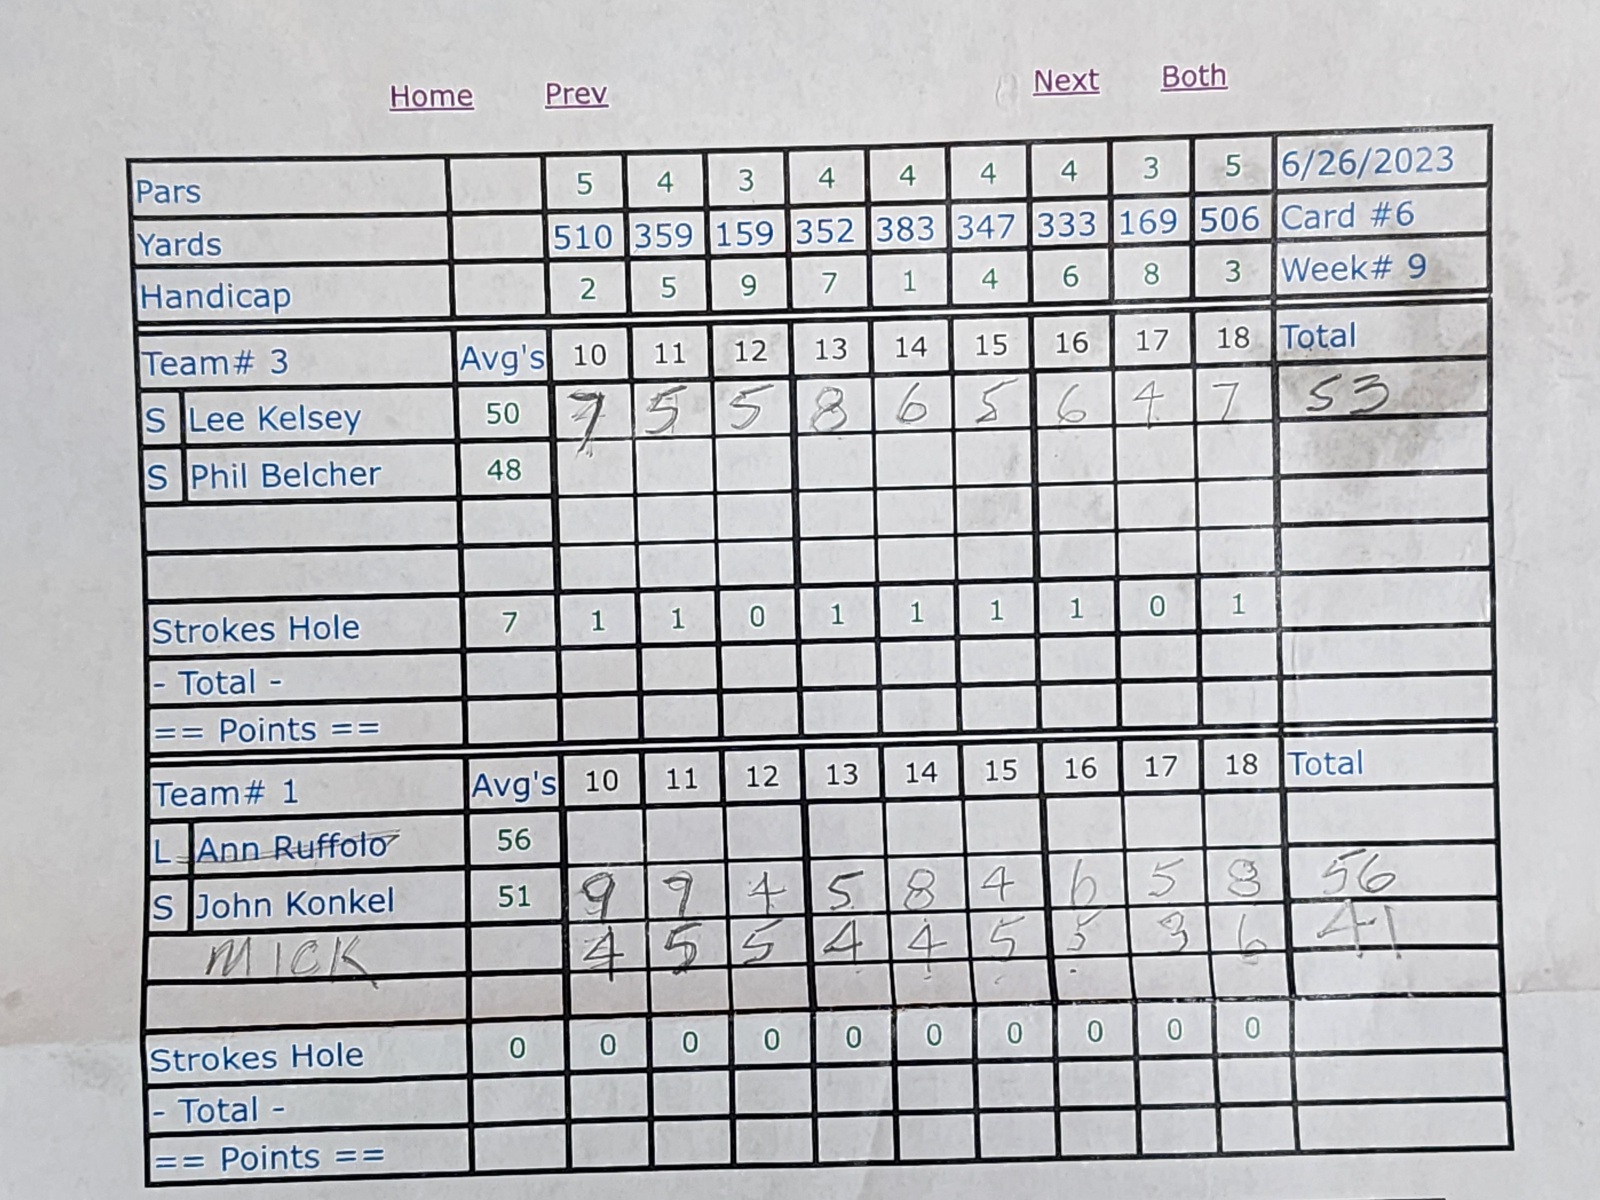 Home Prev Next Both
Pars 5 4 3 4 4 4 4 3 5 6/26/2023
Yards 510 359 159 352 383 347 333 169 506 Card #6
Handicap 2 5 9 7 1 4 6 8 3 Week# 9
Team# 3 Avg's 10 11 12 13 14 15 16 17 18 Total
S Lee Kelsey 50 7 5 5 8 6 5 6 4 7 53
S Phil Belcher 48
Strokes Hole 7 1 1 0 1 1 1 1 0 1
- Total -
== Points ==
Team# 1 Avg's 10 11 12 13 14 15 16 17 18 Total
L Ann Ruffolo 56
S John Konkel 51 9 7 4 5 8 4 6 5 8 56
MICK 4 5 5 4 4 5 5 3 6 41
Strokes Hole 0 0 0 0 0 0 0 0 0 0
- Total -
== Points ==